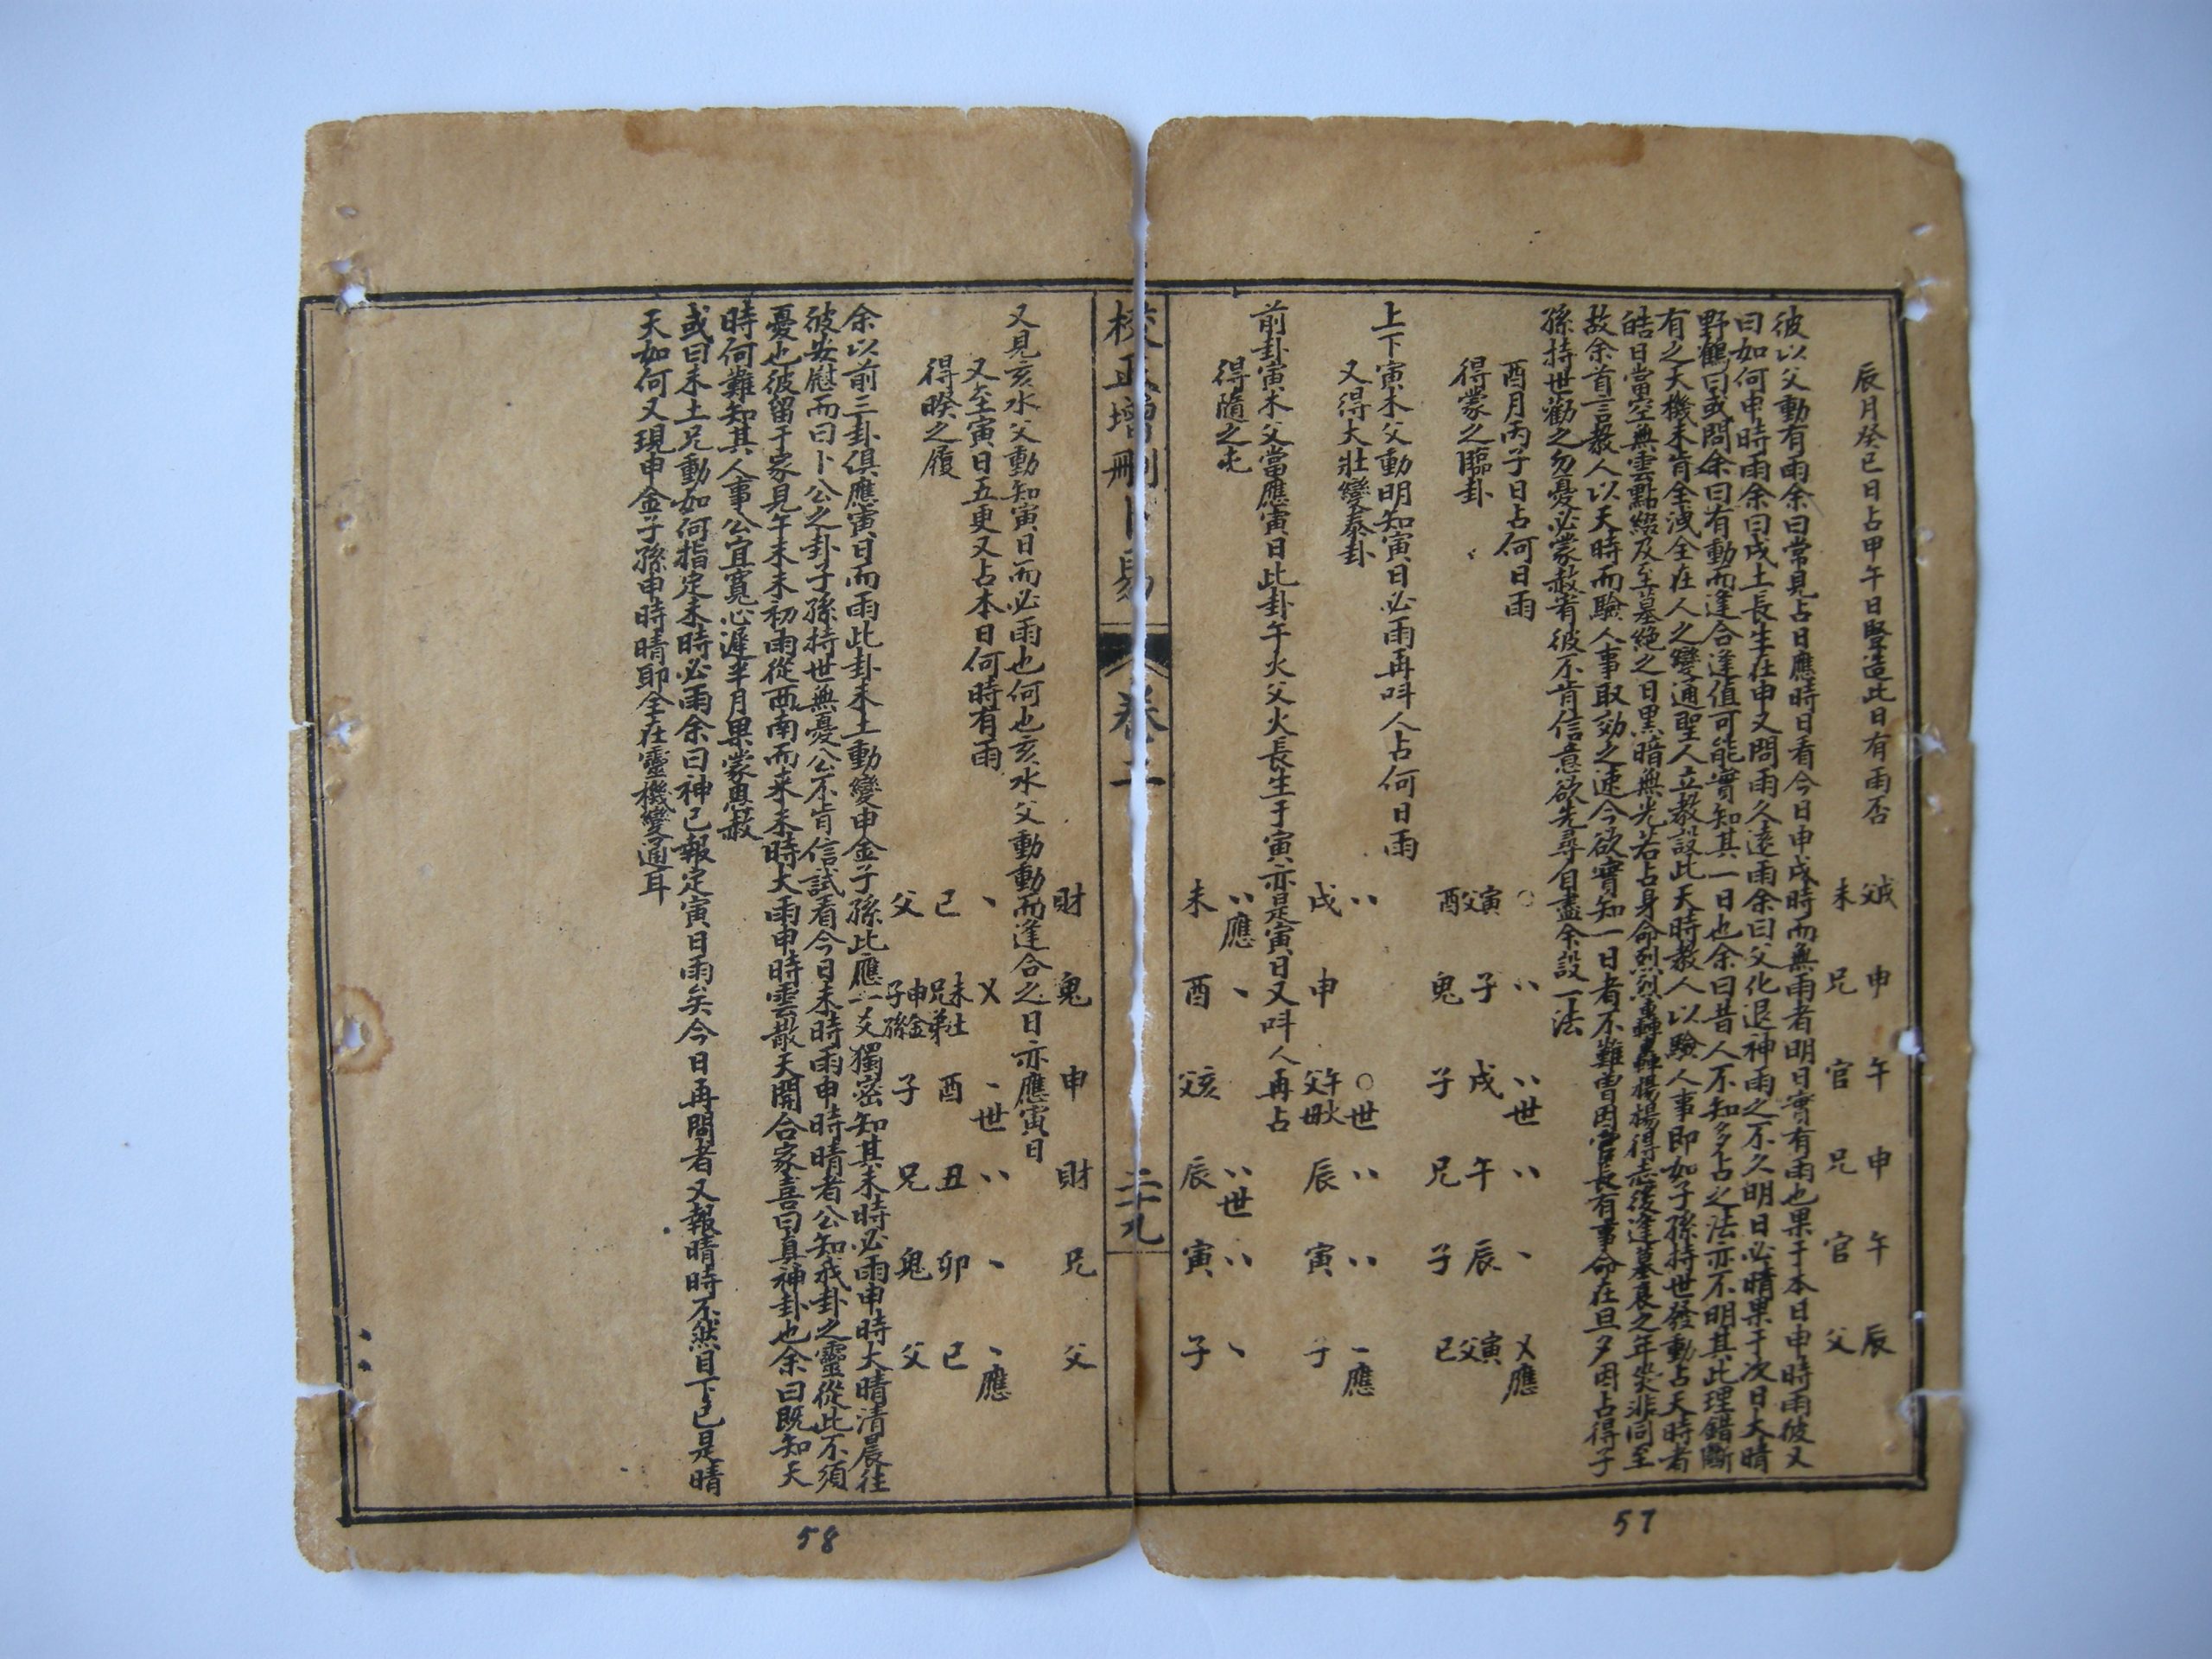 辰月癸巳日占甲午日豎造此日有雨否
父戌 申 午 申 午 辰
未 兄 官 兄 官 父
彼以父動有雨余曰常見占日應時日看今日申戌時而無雨者明日實有雨也果于本日申時雨彼又
曰如何申時雨余曰戌土長生在申又問雨久遠雨余曰父化退神雨之不久明日必晴果于次日大晴
野鶴曰或問余曰有動而逢合逢值可能實知其一日也余曰昔人不知多占之法亦不明其此理錯斷
有之天機未肯全洩全在人之變通聖人立教設此天時教人以驗人事即如子孫持世發動占天時者
皓日當空無雲點綴及至墓絕之日黑暗無光若占身命烈烈轟轟揚揚得志後逢墓衰之年災非同至
故余首言教人以天時而驗人事取効之速今欲實知一日者不難曾因官長有事命在旦夕因占得子
孫持世勸之勿憂必蒙赦宥彼不肯信意欲先尋自盡余設一法
酉月丙子日占何日雨
得蒙之臨卦
○ 〃 〃世 〃 、 乂應
父寅 子 戌 午 辰 父寅
酉 鬼 子 兄 子 巳
上下寅木父動明知寅日必雨再呌人占何日雨
又得大壯變泰卦
〃 ○世 〃 〃 、應
戌 申 父午 辰 寅 子
前卦寅木父當應寅日此卦午火父火長生于寅亦是寅日又呌人再占
得隨之屯
〃應 、 〃世 〃 、
未 酉 父亥 辰 寅 子
校正增刪卜易 卷二 二十九
財 鬼 申 財 兄 父
又見亥水父動知寅日而必雨也何也亥水父動動而逢合之日亦應寅日
又至寅日五更又占本日何時有雨
得睽之履
、 乂 、世 〃 、 、應
巳 未土兄弟 酉 丑 卯 巳
父 申金子孫 子 兄 鬼 父
余以前三卦俱應寅日而雨此卦未土動變申金子孫此應一爻獨密知其未時必雨申時大晴清晨往
彼安慰而曰卜公之卦子孫持世無憂公不肯信試看今日未時雨申時晴者公知我卦之靈從此不須
憂也彼留于家見午末未初雨從西南而來未時大雨申時雲散天開合家喜曰真神卦也余曰既知天
時何難知其人事公宜寬心遲半月果蒙恩赦
或曰未土兄動如何指定未時必雨余曰神已報定寅日雨矣今日再問者又報晴時不然目下已是晴
天如何又現申金子孫申時時晴即全在靈機變通耳
57
58